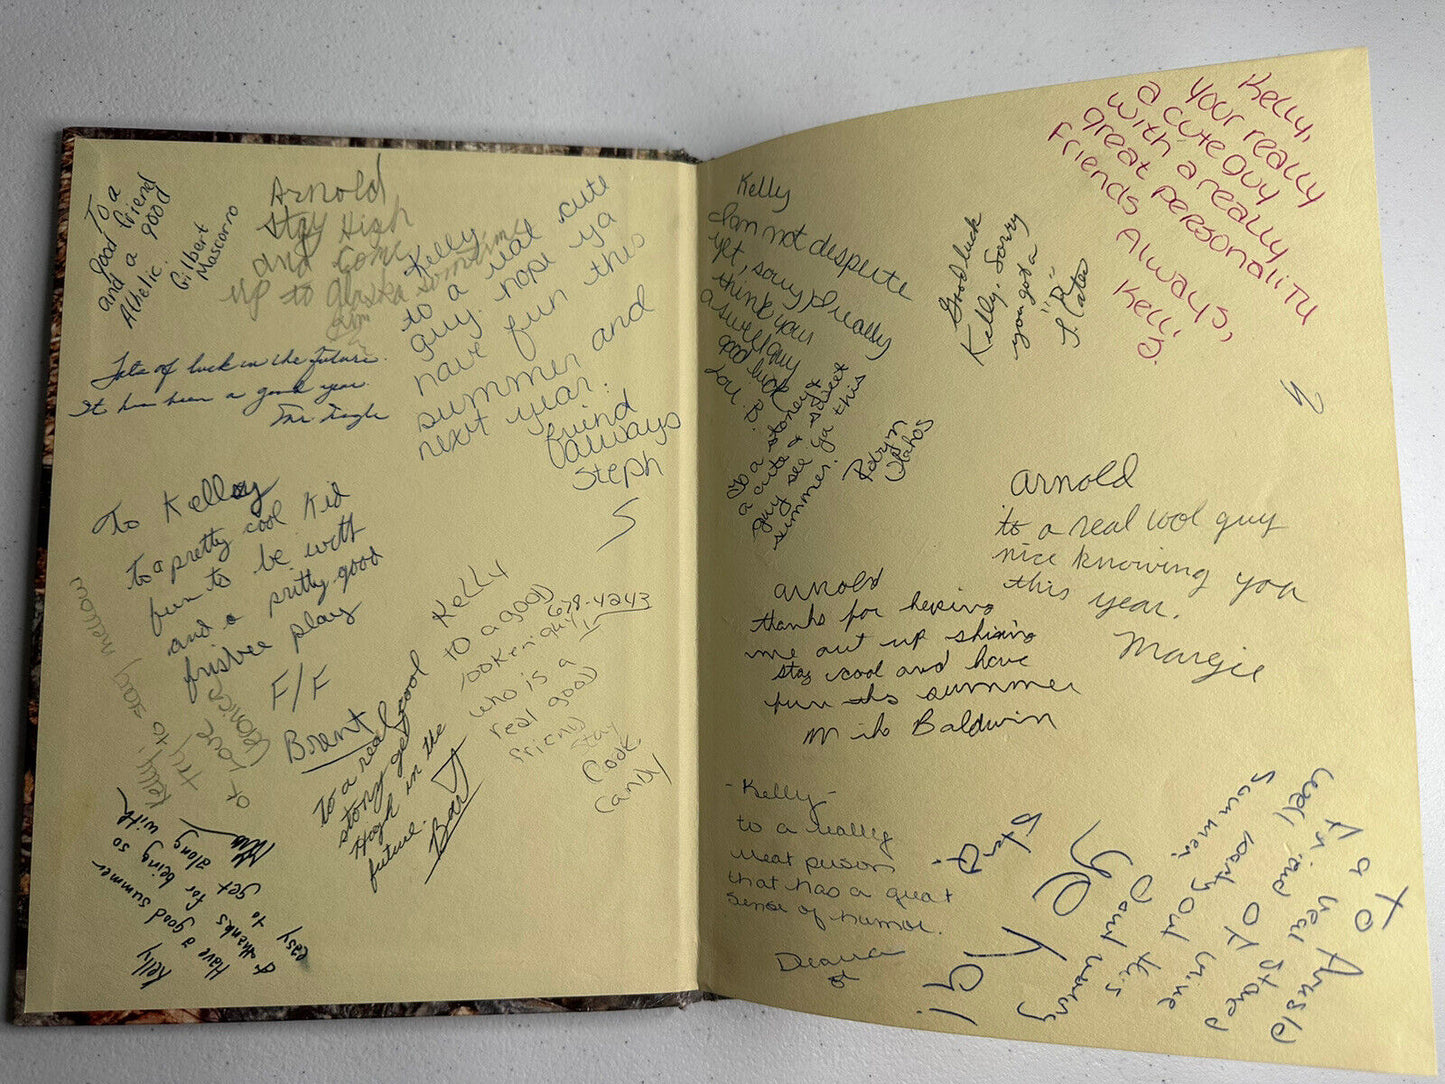 To a
good friend
and a good
Athelic.
Gilbert
Mascorro
Arnold
Stay High
and Come
up to alaska sometime
Kelly
to a real cute
guy. hope ya
have fun this
summer and
next year.
friend
always
Steph
Lots of luck in the future.
It has been a good year.
To Kelly
To a pretty cool Kid
fun to be with
and a pritty good
frisbee play
F/F
Brent
Kelly
to a good
looken guy
678-4243
who is a
real good
friend
Stay
Cool.
Candy
To a real cool
stony get
High in the
future.
Bart
Kelly, to stay mellow
try
of love
Kelly
Have a good summer
& thanks for being so
easy to get along with
Kelly
I am not desperte
yet, sorry pl really
think your
a swell guy
good luck
Lou B.
To a stoney &
a cute & sweet
guy see ya this
summer.
Good luck
Kelly. Sorry
you got a
"R"
J. Cates
Kelly,
Your really
a cute guy
with a really
great personality
Friends Always,
Kelli
S.
Arnold
to a real cool guy
nice knowing you
this year.
Margie
Arnold
thanks for heping
me out up shining
stay cool and have
fun ths summer
Mike Baldwin
-Kelly-
to a really
neat person
that has a great
sense of humor.
Deana
To Arnold
a
Friend OF mine
Well party out this
Summer.